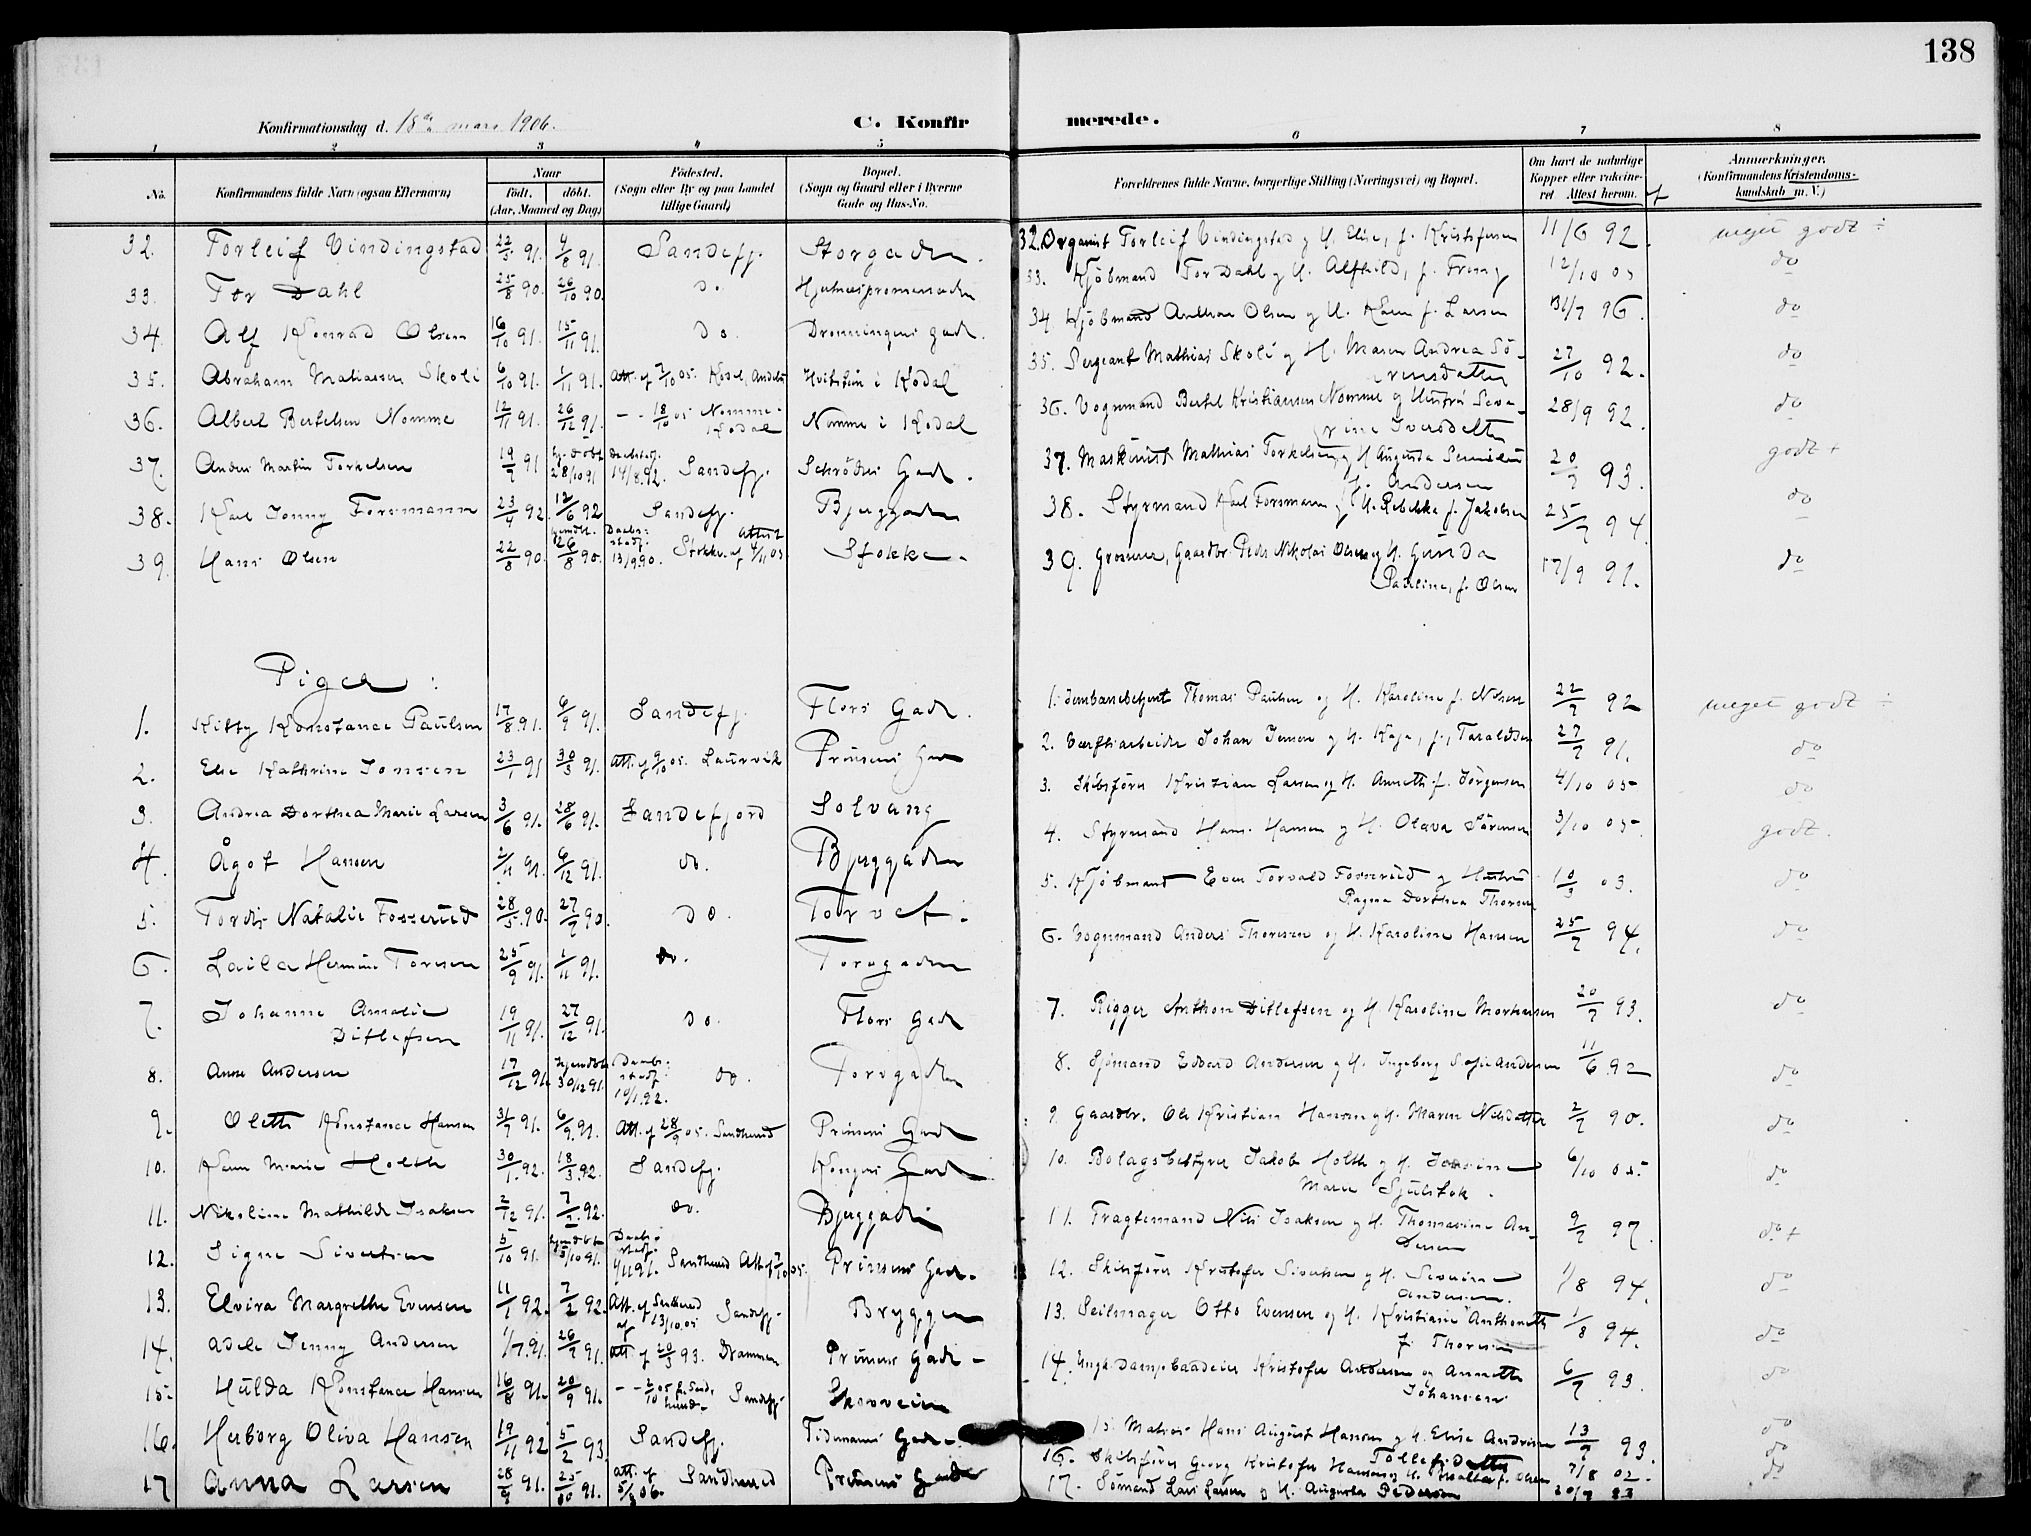 138
Konfirmationsdag d. 18de mars 1906.
C. Konfirmerede.
1 2 3 4 5 6 7 8
No. Konfirmandens fulde Navn (ogsaa Efternavn) Naar født. døbt. (Aar, Maaned og Dag) Fødested. (Sogn eller By og paa Landet tillige Gaard) Bopæl. (Sogn og Gaard eller i Byerne Gade og Hus-No. Forældrenes fulde Navne, borgerlige Stilling (Næringsvei) og Bopæl. Om havt de naturlige Kopper eller vaccineret Attest herom. Anmærkninger. (Konfirmandens Kristendomskundskab m. V.)
32. Torleif Vindingstad 22/5 91. 4/8 91. Sandefj. Storgaden. 32. Organist Torleif Vindingstad og H. Elise, f. Kristofersen 11/6 92. meget godt ÷
33. Tor Dahl 25/8 90. 26/10 90. do. Hjertnespromenaden 33. Kjøbmand Tor Dahl og H. Alfhild, f. 12/10 05 do
34. Alf Konrad Olsen 16/10 91. 15/11 91. do. Dronningens gade. 34. Kjøbmand Olsen og H. Karen f. Larsen 31/7 96. do
35. Abraham Matiassen Skoli 6/10 91. 1/11 91. Att. af 7/10 05. Kodal, Andebu i Kodal 35. Sergeant Mathias Skoli og H. Maren Andrea Sørensdatter 27/10 92. do
36. Albert Bertelsen Nomme 12/11 91. 26/12 91. - - 18/10 05 Nomme - Kodal Nomme i Kodal 36. Vognmand Bertel Kristiansen Nomme og Hustru Severine Iversdatter 28/9 92. do
37. Anders Martin Torkelsen 19/9 91 hj. døbt 28/10 91 Daabstadf. 14/8.92. Sandefj. Schrøders Gade. 37. Maskinist Mathias Torkelsen og H. Augusta f. Andersen 20/7 93. godt +
38. Karl Jonny Forsmann 23/4 92. 12/6 92 Sandefj. Bjerggaden 38. Styrmand Karl Forsmann og H. Rebekka f. Jakobsen 25/7 94. do
39. Hans Olsen 22/8 90. hjemdt. 26/8 90. Daabsstadf. 13/9.90. Stokke. Attest af 4/11 05 Stokke. 39. Groserer, Gaardbr. Peder Nikolai Olsen og H. Gunda Pauline, f. Olsen 17/9 91. do
Piger:
1. Kitty Konstance Paulsen 17/8 91. 6/9 91. Sandefj. Flors Gade. 1. Jernbanebetjent Thomas Paulsen og H. Karoline f. Nilsen 22/7 92 meget godt ÷
2. Else Kathrine Jensen 23/1 91 30/3 91. Att. af 9/10 05. Laurvik Prinsens Gade 2. Værftsarbeider Johan Jensen og H. Kaja, f. Taraldsen 27/7 91. do
3. Andrea Dorthea Marie Larsen 3/6 91. 28/6 91. Sandefjord Solvang 3. Skibsfører Kristian Larsen og H. Annette f. Jørgensen 4/10 05 do
4. Ågot Hansen 2/11 91. 6/12 91. do. Bjerggaden 4. Styrmand Hans Hansen og H. Olava Sørensen 3/10 05. godt.
5. Tordis Natalie Fosserud 28/5 90. 27/7 90. do. Torvet. 5. Kjøbmand Even Torvald Fosserud og Hustru Ragna Dorthea Thorsen 10/3 03. do
6. Laila Hermine Toresen 25/9 91. 1/11 91. do. Torvgaden 6. Vognmand Anders Thoresen og H. Karoline Hansen 25/7 94. do
7. Johanne Amalie Ditlefsen 19/11 91. 27/12 91. do. Flors Gade 7. Rigger Anthon Ditlefsen og H. Karoline Mortensen 20/7 93. do
8. Anne Andersen 17/12 91. hjemdøbt 30/12 91. Daabsstadf. 10/1.92. do. Torvgaden 8. Sjømand Edvard Andersen og H. Ingeborg Sofie Andersen 11/6 92 do
9. Olette Konstance Hansen 31/7 91. 6/9.91. Att. af 28/9 05. Sandherred Prinsens Gade 9. Gaardbr. Ole Kristian Hansen og H. Maren Nilsdatter 2/7 90. do
10. Karen Marie Holth 30/1.92. 18/3.92. Sandefj. Kongens Gade 10. Bolagsbestyrer Jakob Holth og H. Josefine Marie Sjulstok. 6/10 05. do
11. Nikoline Mathilde Isaksen 2/12 91. 7/2.92. do. Bjerggaden 11. Fragtemand Nils Isaksen og H. Thomasine Andersen 9/7 97. do +
12. Signe Sivertsen 5/10 91. hjemdøbt 5/10 91. Daabsstadf. Sandherred Att. af 7/10 05. Prinsens Gade. 12. Skibsfører Kristofer Sivertsen og H. Severine Andersen. 1/8 94. do
13. Elvira Margrethe Evensen 11/1 92. 7/2 92. Att. af af 13/10.05 Sandefj. Bryggen 13. Seilmager Otto Evensen og H. Kristiane Anthonette f. Thoresen 1/8 94. do
14. Adele Jenny Andersen 1/7.91. 26/7 91. Att. af 20/3 93. Drammen Prinsens Gade - 14. Kristofer Andersen og Annette Johansen 6/7 93. do
15. Hulda Konstance Hansen 16/8 91. 20/9 91. - - 2/10 05 f. Sandherred Sandefj. Skovveien 15. Matros Hans August Hansen og H. Elise Andrine Tollefsdatter 13/7 93. do
16. Herborg Oliva Hansen 19/11 92 5/2 93. Sandefj. Tidemands Gade. 16. Skibsfører Georg Kristofer Hansen og H. f. Olsen 7/8 02. do
17 Anna Larsen 28/9 91. 25/10 91. Att. af 5/3 06. Sandherred Prinsens Gade 17. Sømand Lars Larsen og H. Augusta Pedersen 20/7 93 do